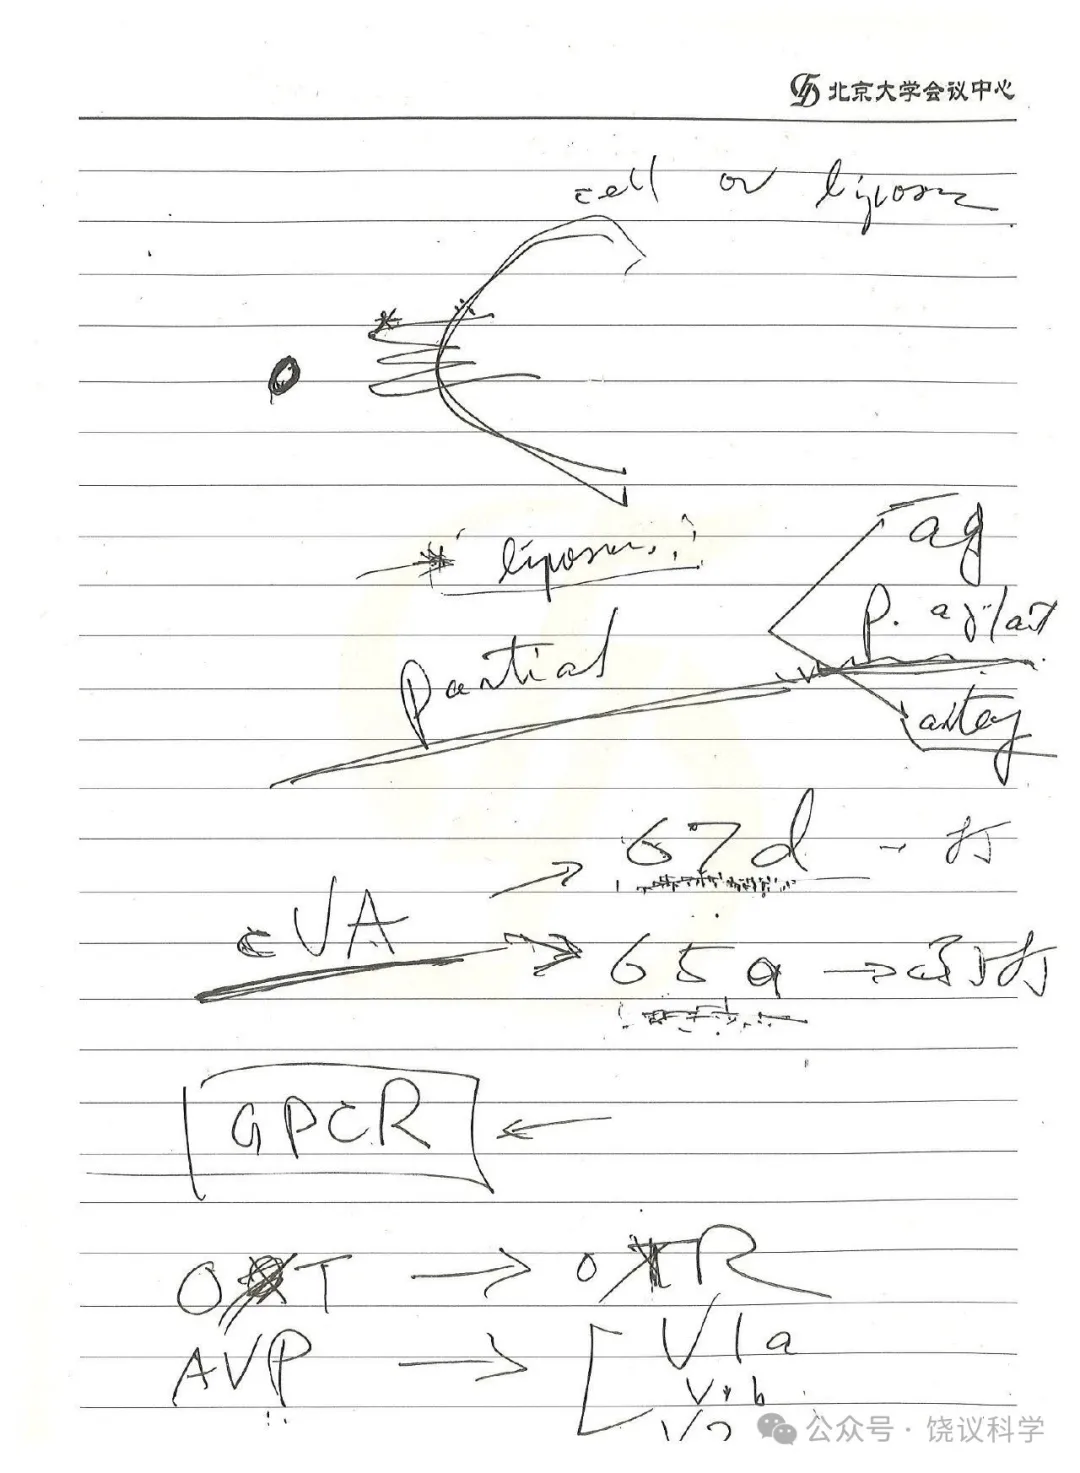 北京大学会议中心
cell or liposome
liposome
Partial
ag
P. ag
67d - 打
cVA
65a → 打
GPCR
OT → OTR
AVP → V1a
V1b
V2
公众号 · 饶议科学